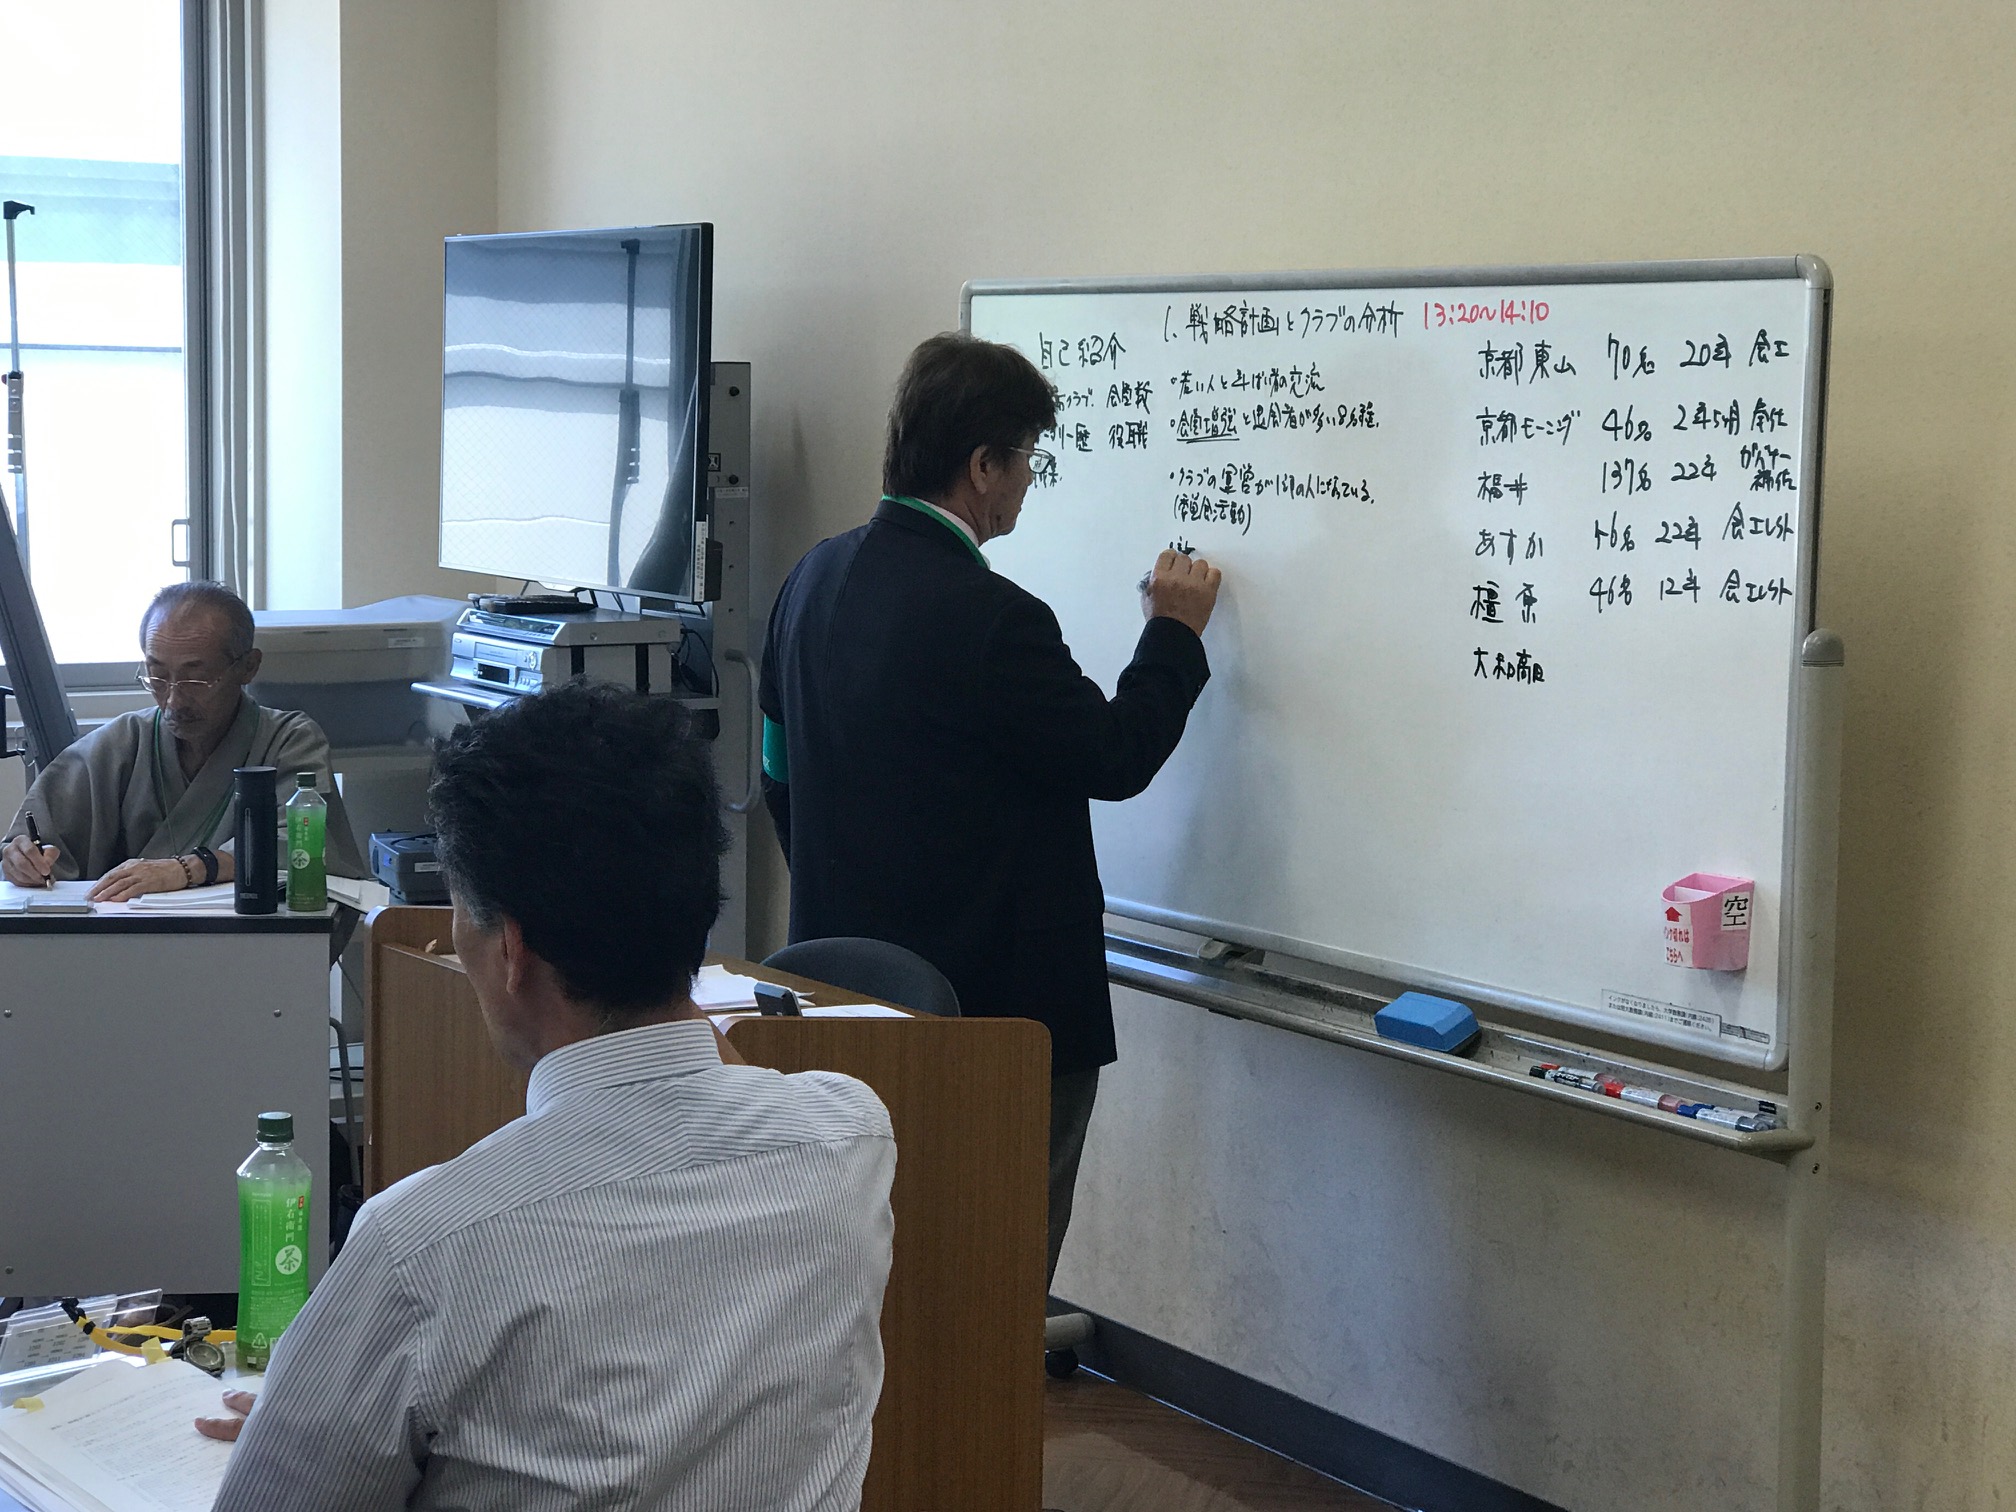 1. 戦略計画とクラブの分析 13:20〜14:10
自己紹介
クラブ. 会員数
リー歴 役職
・若い人と年ぱい者の交流
・会員増強と退会者が多い
・クラブの運営が1部の人になっている。
(委員会活動)
京都東山 70名 20年 会エ
京都モーニング 46名 2年5ヶ月
福井 137名 22年 ガバナー補佐
あすか 名 22年 会エレクト
橿原 46名 12年 会エレクト
大和高田
空
インク切れは
こちらへ
伊右衛門
茶
伊右衛門
茶